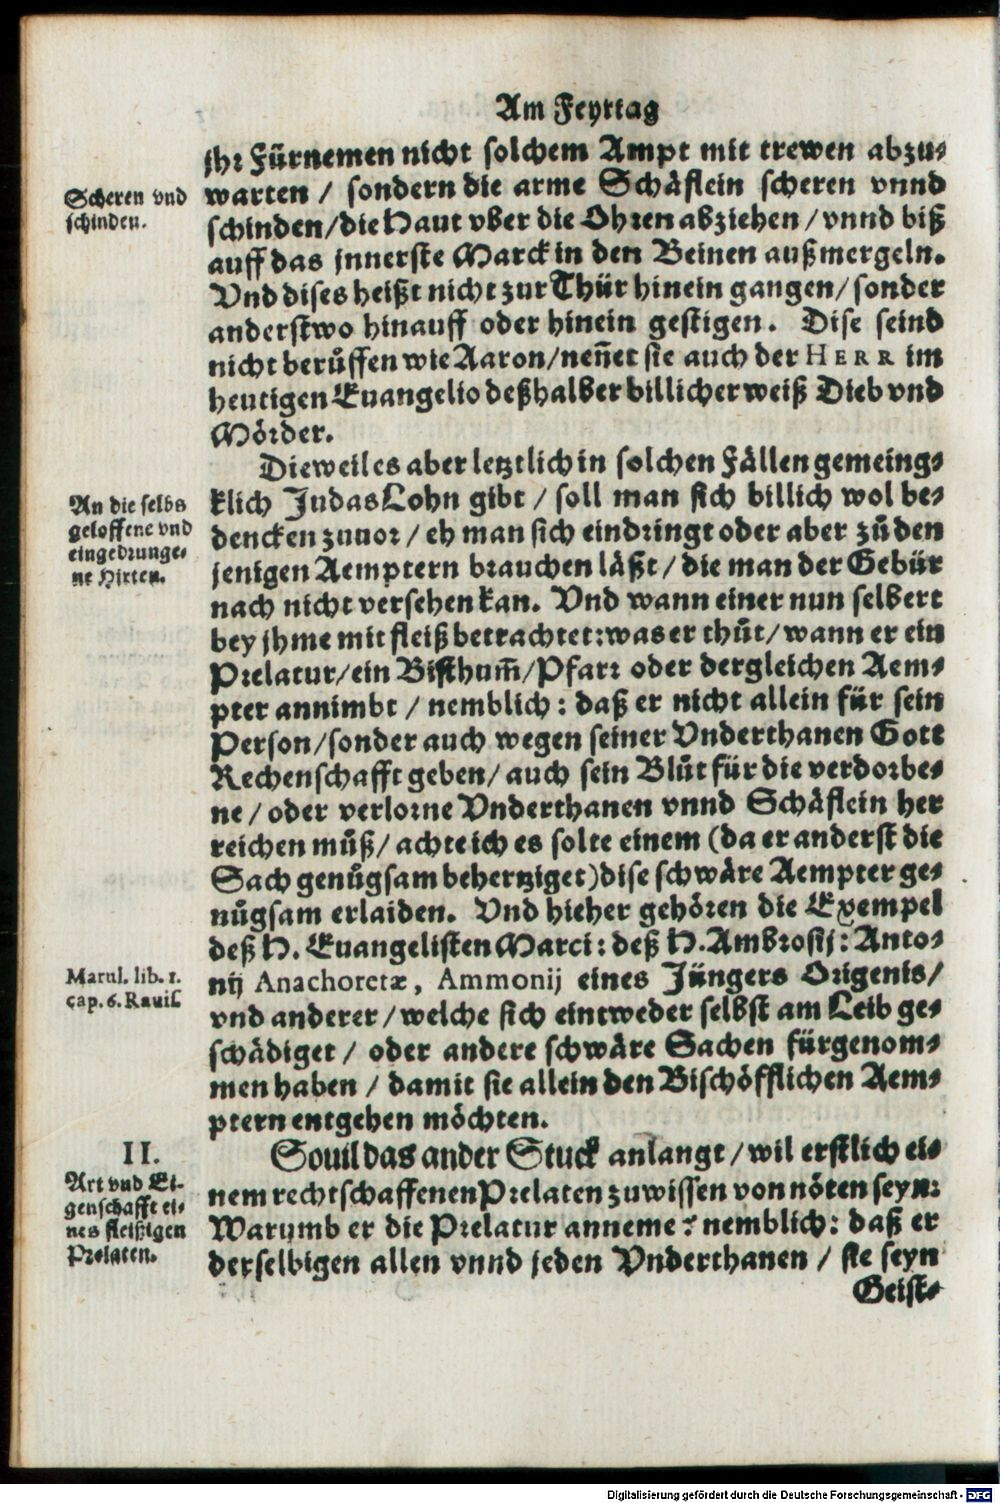 Am Feyrtag
jhr Fürnemen nicht solchem Ampt mit trewen abzu-
Scheren vnd
schinden.
warten / sondern die arme Schäflein scheren vnnd
schinden/die Haut vber die Ohren abziehen/vnnd biß
auff das jnnerste Marck in den Beinen außmergeln.
Vnd dises heißt nicht zur Thür hinein gangen/sonder
anderstwo hinauff oder hinein gestigen. Dise seind
nicht berůffen wie Aaron/neñet sie auch der HERR im
heutigen Euangelio deßhalber billicher weiß Dieb vnd
Mörder.
Dieweil es aber letztlich in solchen Fällen gemeing-
An die selbs
geloffene vnd
eingedrunge-
ne Hirten.
klich Judas Lohn gibt / soll man sich billich wol be-
dencken zuuor/ eh man sich eindringt oder aber zů den
jenigen Aemptern brauchen läßt / die man der Gebür
nach nicht versehen kan. Vnd wann einer nun selbert
bey jhme mit fleiß betrachtet: was er thůt/ wann er ein
Prelatur/ein Bisthum̃/Pfarr oder dergleichen Aem-
pter annimbt / nemblich: daß er nicht allein für sein
Person/sonder auch wegen seiner Vnderthanen Gott
Rechenschafft geben/ auch sein Blůt für die verdorbe-
ne/ oder verlorne Vnderthanen vnnd Schäflein her
reichen můß/ achte ich es solte einem (da er anderst die
Sach genůgsam behertziget) dise schwäre Aempter ge-
nůgsam erlaiden. Vnd hieher gehören die Exempel
deß H. Euangelisten Marci: deß H. Ambrosij: Anto-
Marul. lib. 1.
cap. 6. Rauis
nij Anachoretæ, Ammonij eines Jüngers Origenis/
vnd anderer/welche sich eintweder selbst am Leib ge-
schädiget / oder andere schwäre Sachen fürgenom-
men haben / damit sie allein den Bischöfflichen Aem-
ptern entgehen möchten.
II.
Art vnd Ei-
genschafft ei-
nes fleißigen
Prelaten.
Souil das ander Stuck anlangt/ wil erstlich ei-
nem rechtschaffenen Prelaten zuwissen von nöten seyn:
Warumb er die Prelatur anneme? nemblich: daß er
derselbigen allen vnnd jeden Vnderthanen / sie seyn
Geist-
Digitalisierung gefördert durch die Deutsche Forschungsgemeinschaft - DFG